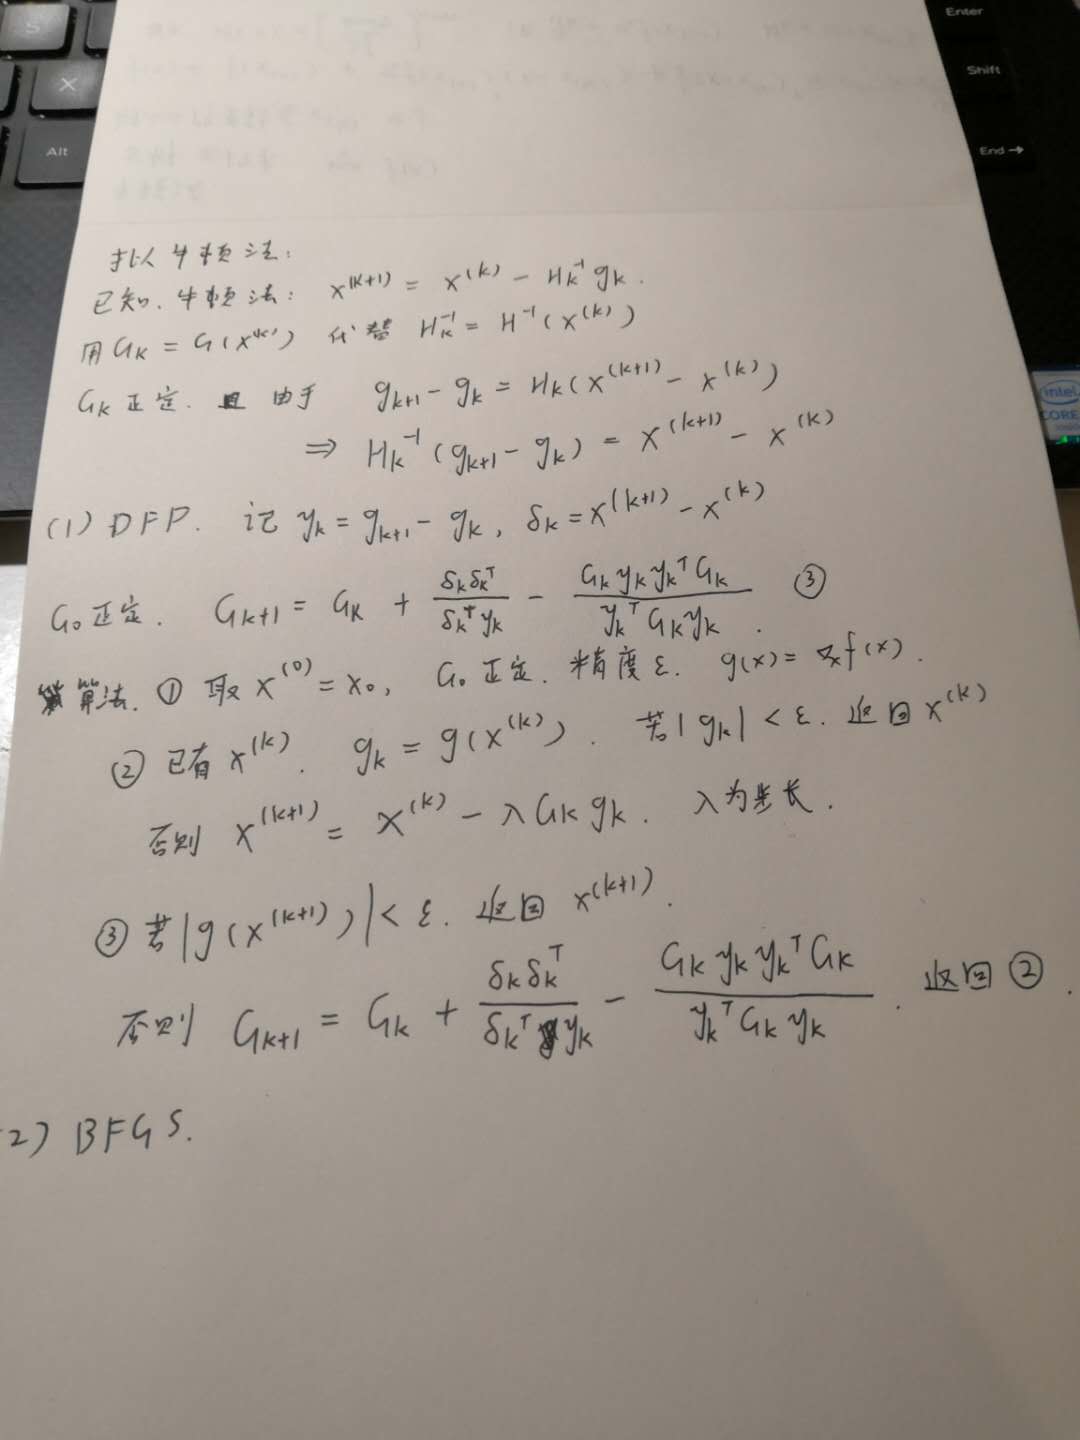 Enter
Shift
End →
S
X
Alt
intel
CORE
拟牛顿法:
已知. 牛顿法: x^(k+1) = x^(k) - H_k^-1 g_k.
用 G_k = G(x^(k)) 代替 H_k^-1 = H^-1(x^(k))
G_k 正定. 且 由于 g_k+1 - g_k = H_k(x^(k+1) - x^(k))
⇒ H_k^-1 (g_k+1 - g_k) = x^(k+1) - x^(k)
(1) DFP. 记 y_k = g_k+1 - g_k, δ_k = x^(k+1) - x^(k)
G_0 正定. G_k+1 = G_k + δ_k δ_k^T / δ_k^T y_k - G_k y_k y_k^T G_k / y_k^T G_k y_k . ③
算法. ① 取 x^(0) = x_0, G_0 正定. 精度 ε. g(x) = ∇_x f(x).
② 已有 x^(k). g_k = g(x^(k)). 若 |g_k| < ε. 返回 x^(k)
否则 x^(k+1) = x^(k) - λ G_k g_k. λ为步长.
③ 若 |g(x^(k+1))| < ε. 返回 x^(k+1).
否则 G_k+1 = G_k + δ_k δ_k^T / δ_k^T y_k - G_k y_k y_k^T G_k / y_k^T G_k y_k . 返回 ② .
2) BFGS.